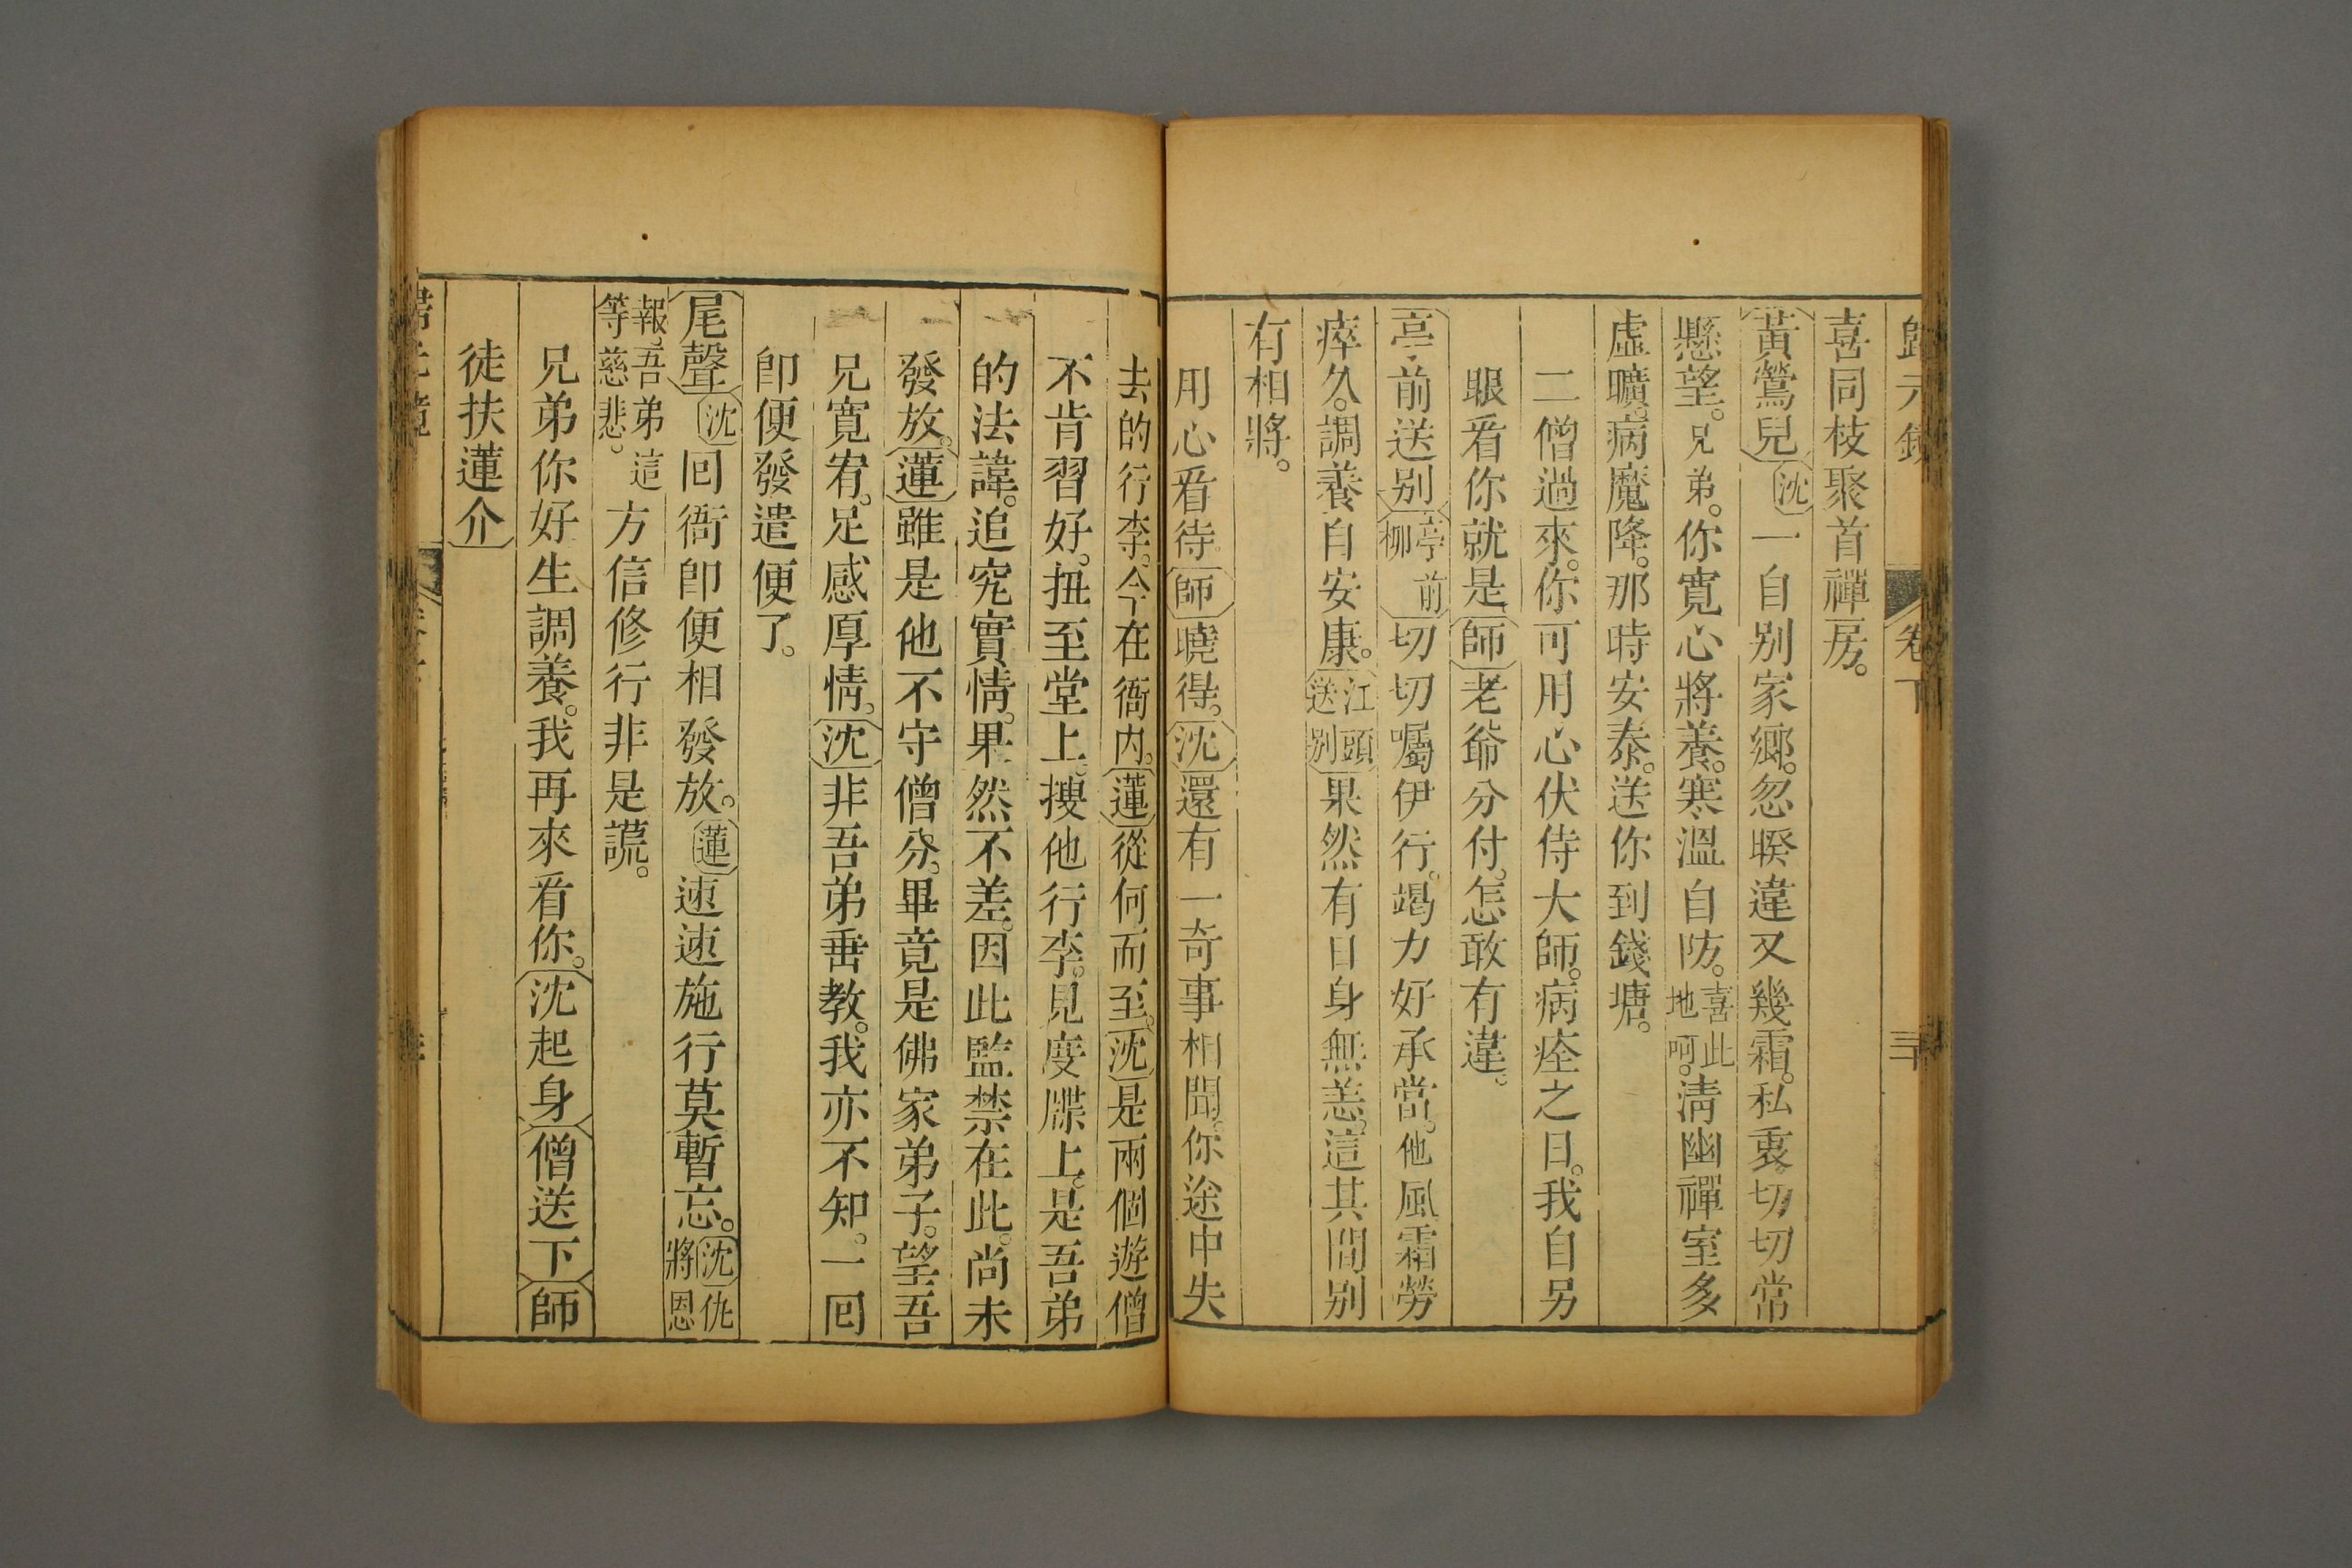 歸元鏡 卷下 三十
喜同枝聚首禪房。
黃鶯兒 沈 一自别家鄉。忽睽違又幾霜。私衷切切常
懸望。兄弟。你寬心將養。寒溫自防。喜此地呵。清幽禪室多
虛曠。病魔降。那時安泰。送你到錢塘。
二僧過來。你可用心伏侍大師。病痊之日。我自另
眼看你就是 師 老爺分付。怎敢有違。
亭前送别 亭前柳 切切囑伊行。竭力好承當。他風霜勞
瘁久。調養自安康。江頭送别 果然有日身無恙。這其間别
有相將。
用心看待。師 曉得。沈 還有一奇事相聞。你途中失
去的行李。今在衙內。蓮 從何而至。沈 是兩個遊僧
不肯習好。扭至堂上。搜他行李。見度牒上。是吾弟
的法諱。追究實情。果然不差。因此監禁在此。尚未
發放。蓮 雖是他不守僧分。畢竟是佛家弟子。望吾
兄寬宥。足感厚情。沈 非吾弟垂教。我亦不知。一囘
卽便發遣便了。
尾聲 沈 囘衙卽便相發放。蓮 速速施行莫暫忘。沈 仇將恩
報。吾弟這等慈悲。方信修行非是謊。
兄弟你好生調養。我再來看你。沈起身 僧送下 師
徒扶蓮介